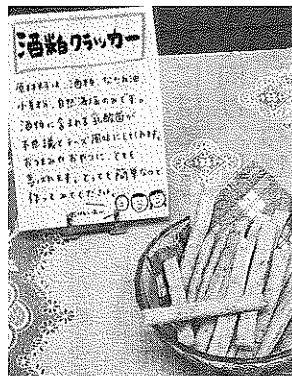 酒粕クラッカー
原材料は、酒粕、なたね油
小麦粉、自然海塩のみです。
酒粕に含まれる乳酸菌が
不思議とチーズ風味にしてくれます。
おつまみやおやつに、とても
喜ばれます。とっても簡単なので
作ってみてください。